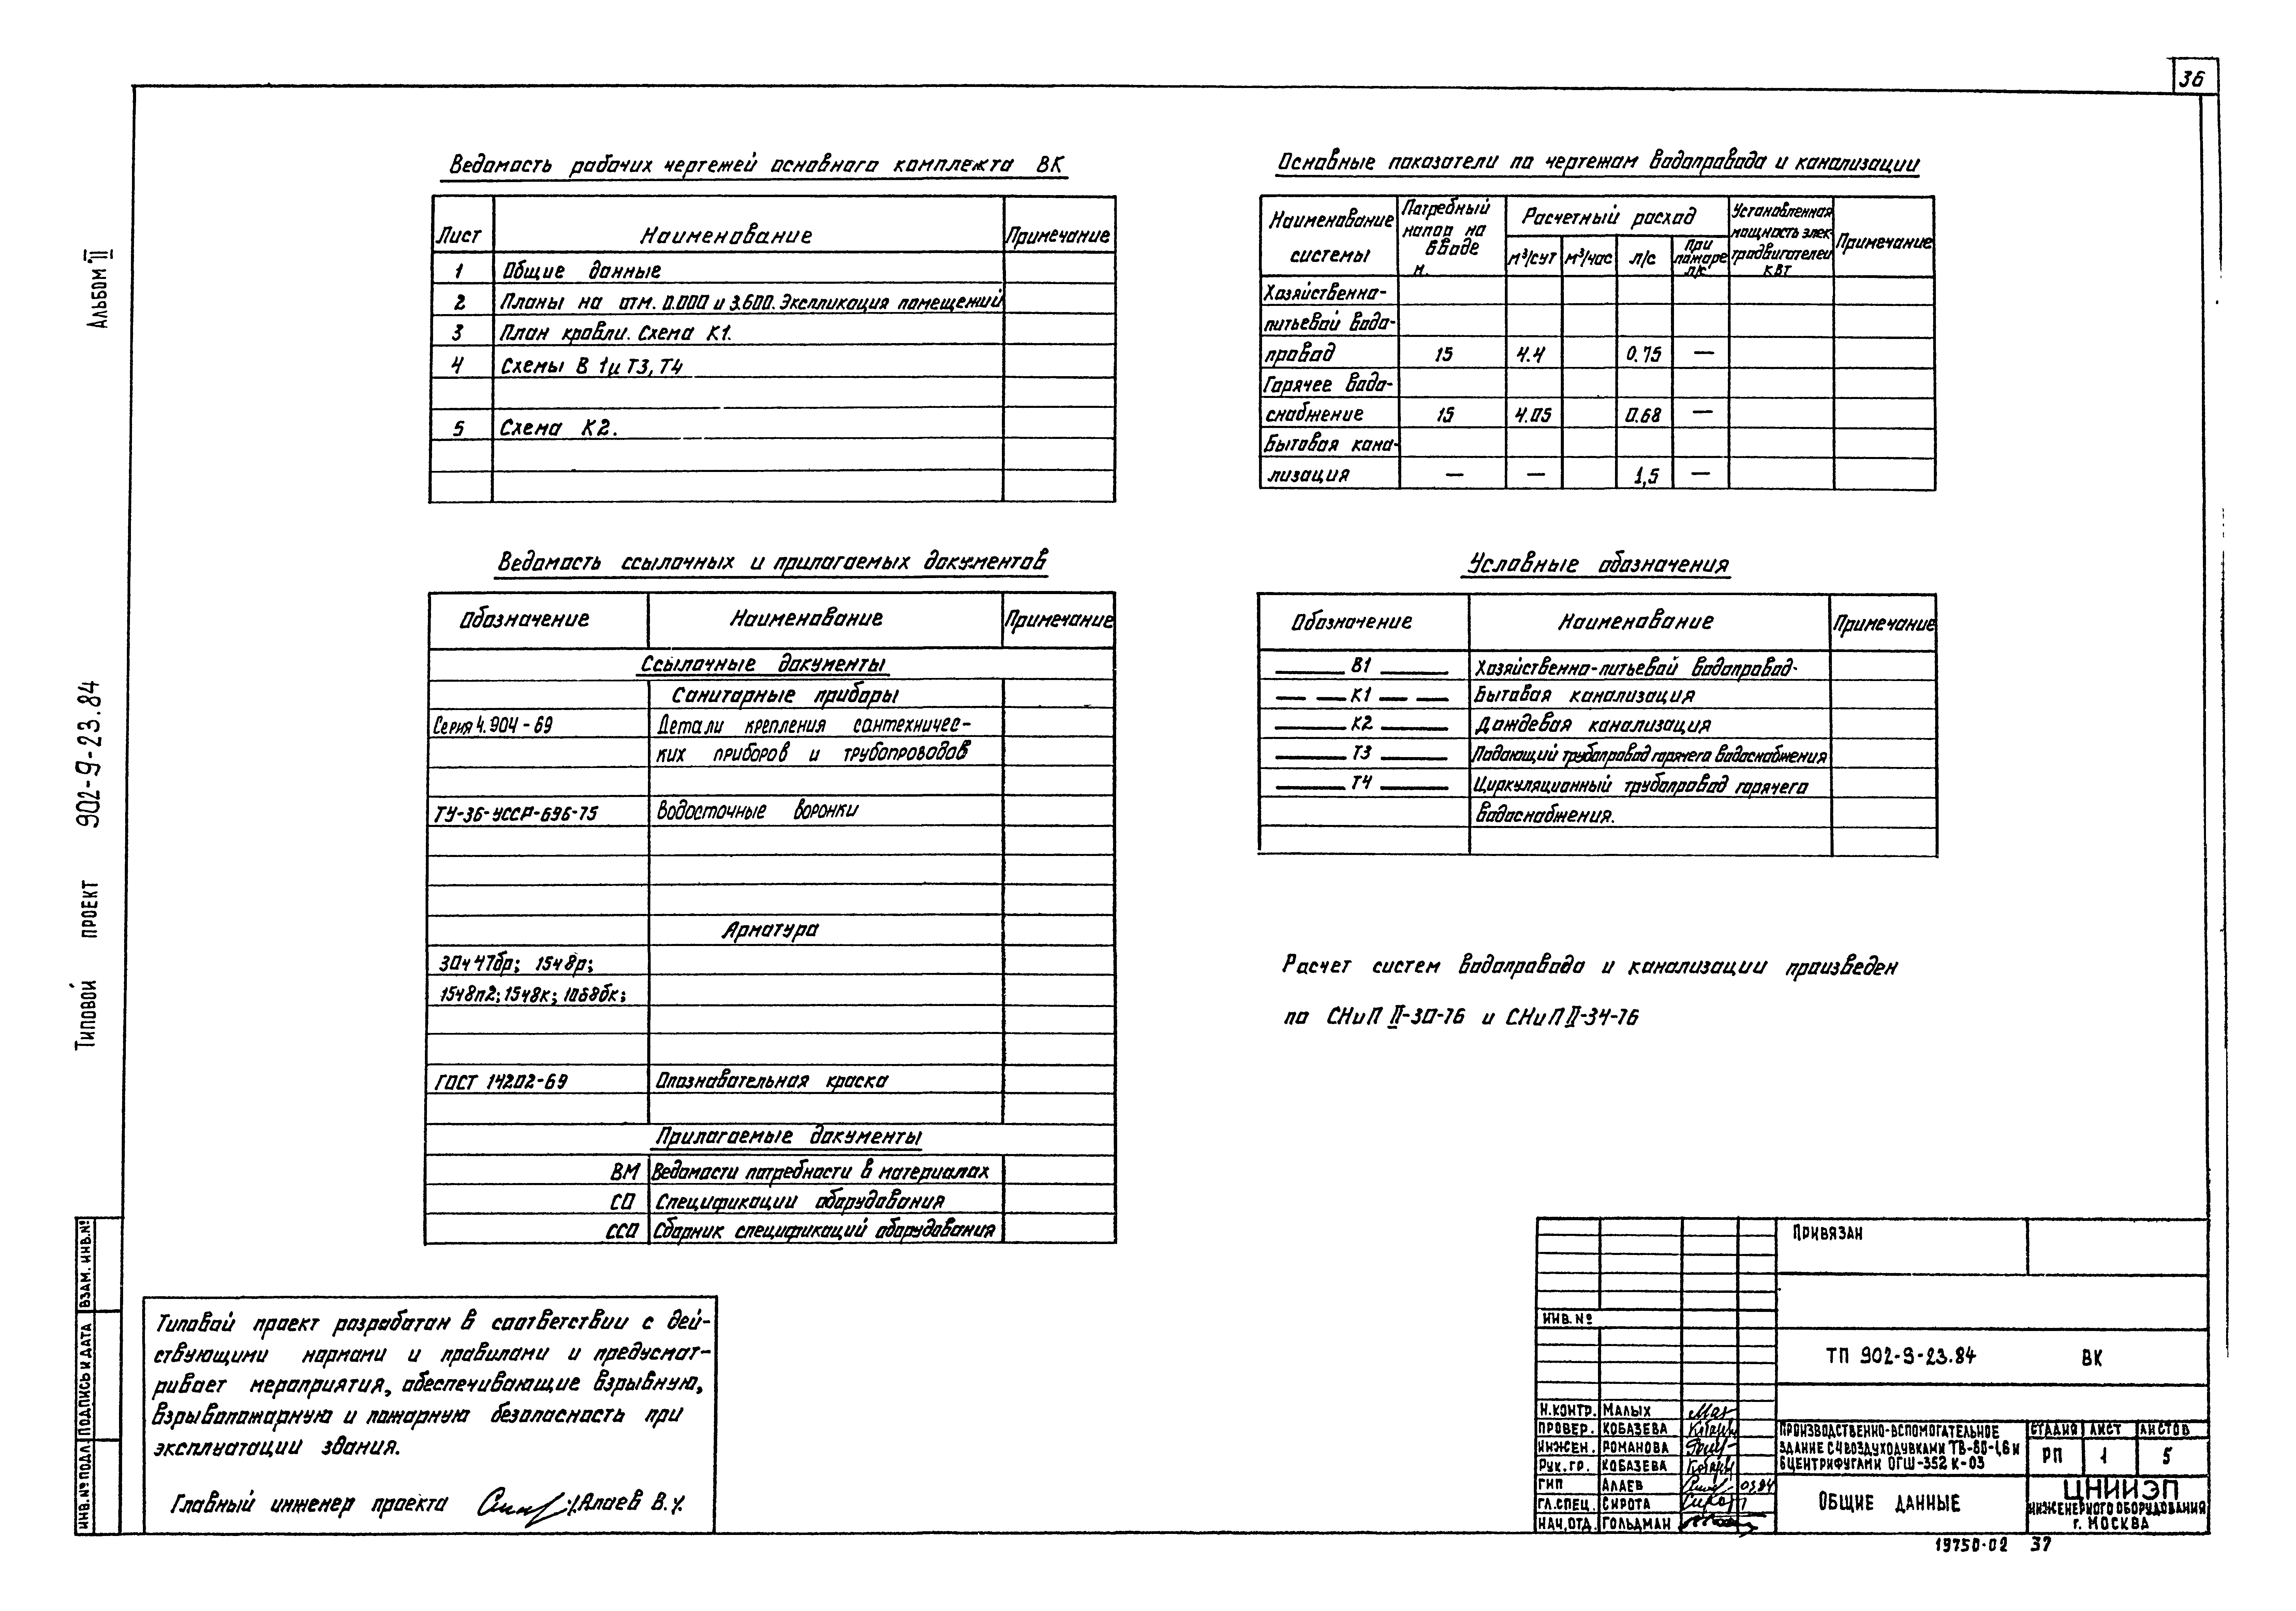 36
Альбом II
Типовой проект 902-9-23.84
Ведомость рабочих чертежей основного комплекта ВК
Лист Наименование Примечание
1 Общие данные
2 Планы на отм. 0.000 и 3.600. Экспликация помещений
3 План кровли. Схема К1.
4 Схемы В 1 и Т3, Т4
5 Схема К2.
Ведомость ссылочных и прилагаемых документов
Обозначение Наименование Примечание
Ссылочные документы
Санитарные приборы
Серия 4.904-69 Детали крепления сантехничес-
ких приборов и трубопроводов
ТУ-36-УССР-696-75 Водосточные воронки
Арматура
30ч47бр; 15ч8р;
15ч8п2; 15ч8к; 10б8бк;
ГОСТ 14202-69 Опознавательная краска
Прилагаемые документы
ВМ Ведомости потребности в материалах
СО Спецификации оборудования
ССО Сборник спецификаций оборудования
Основные показатели по чертежам водопровода и канализации
Наименование системы
Потребный напор на вводе м.
Расчетный расход
м³/сут м³/час л/с При пожаре л/с
Установленная мощность элек-
тродвигателей кВт
Примечание
Хозяйственно-
питьевой водо-
провод 15 4.4 0.75 —
Горячее водо-
снабжение 15 4.05 0.68 —
Бытовая кана-
лизация — — 1,5 —
Условные обозначения
Обозначение Наименование Примечание
В1 Хозяйственно-питьевой водопровод.
К1 Бытовая канализация
К2 Дождевая канализация
Т3 Подающий трубопровод горячего водоснабжения
Т4 Циркуляционный трубопровод горячего
водоснабжения.
Расчет систем водопровода и канализации произведен
по СНиП II-30-76 и СНиП II-34-76
Типовой проект разработан в соответствии с дей-
ствующими нормами и правилами и предусмат-
ривает мероприятия, обеспечивающие взрывную,
взрывопожарную и пожарную безопасность при
эксплуатации здания.
Главный инженер проекта /Алаев В.У.
ИНВ.№ ПОДЛ. ПОДПИСЬ И ДАТА ВЗАМ. ИНВ.№
Привязан
ИНВ.№
ТП 902-9-23.84 ВК
Н.КОНТР. МАЛЫХ
ПРОВЕР. КОБАЗЕВА
ИНЖЕН. РОМАНОВА
РУК.ГР. КОБАЗЕВА
ГИП АЛАЕВ 03.84
ГЛ.СПЕЦ. СИРОТА
НАЧ.ОТД. ГОЛЬДМАН
ПРОИЗВОДСТВЕННО-ВСПОМОГАТЕЛЬНОЕ
ЗДАНИЕ С 4 ВОЗДУХОДУВКАМИ ТВ-80-1,6 И
6 ЦЕНТРИФУГАМИ ОГШ-352 К-03
СТАДИЯ ЛИСТ ЛИСТОВ
РП 1 5
ОБЩИЕ ДАННЫЕ
ЦНИИЭП
ИНЖЕНЕРНОГО ОБОРУДОВАНИЯ
г. МОСКВА
19750-02 37